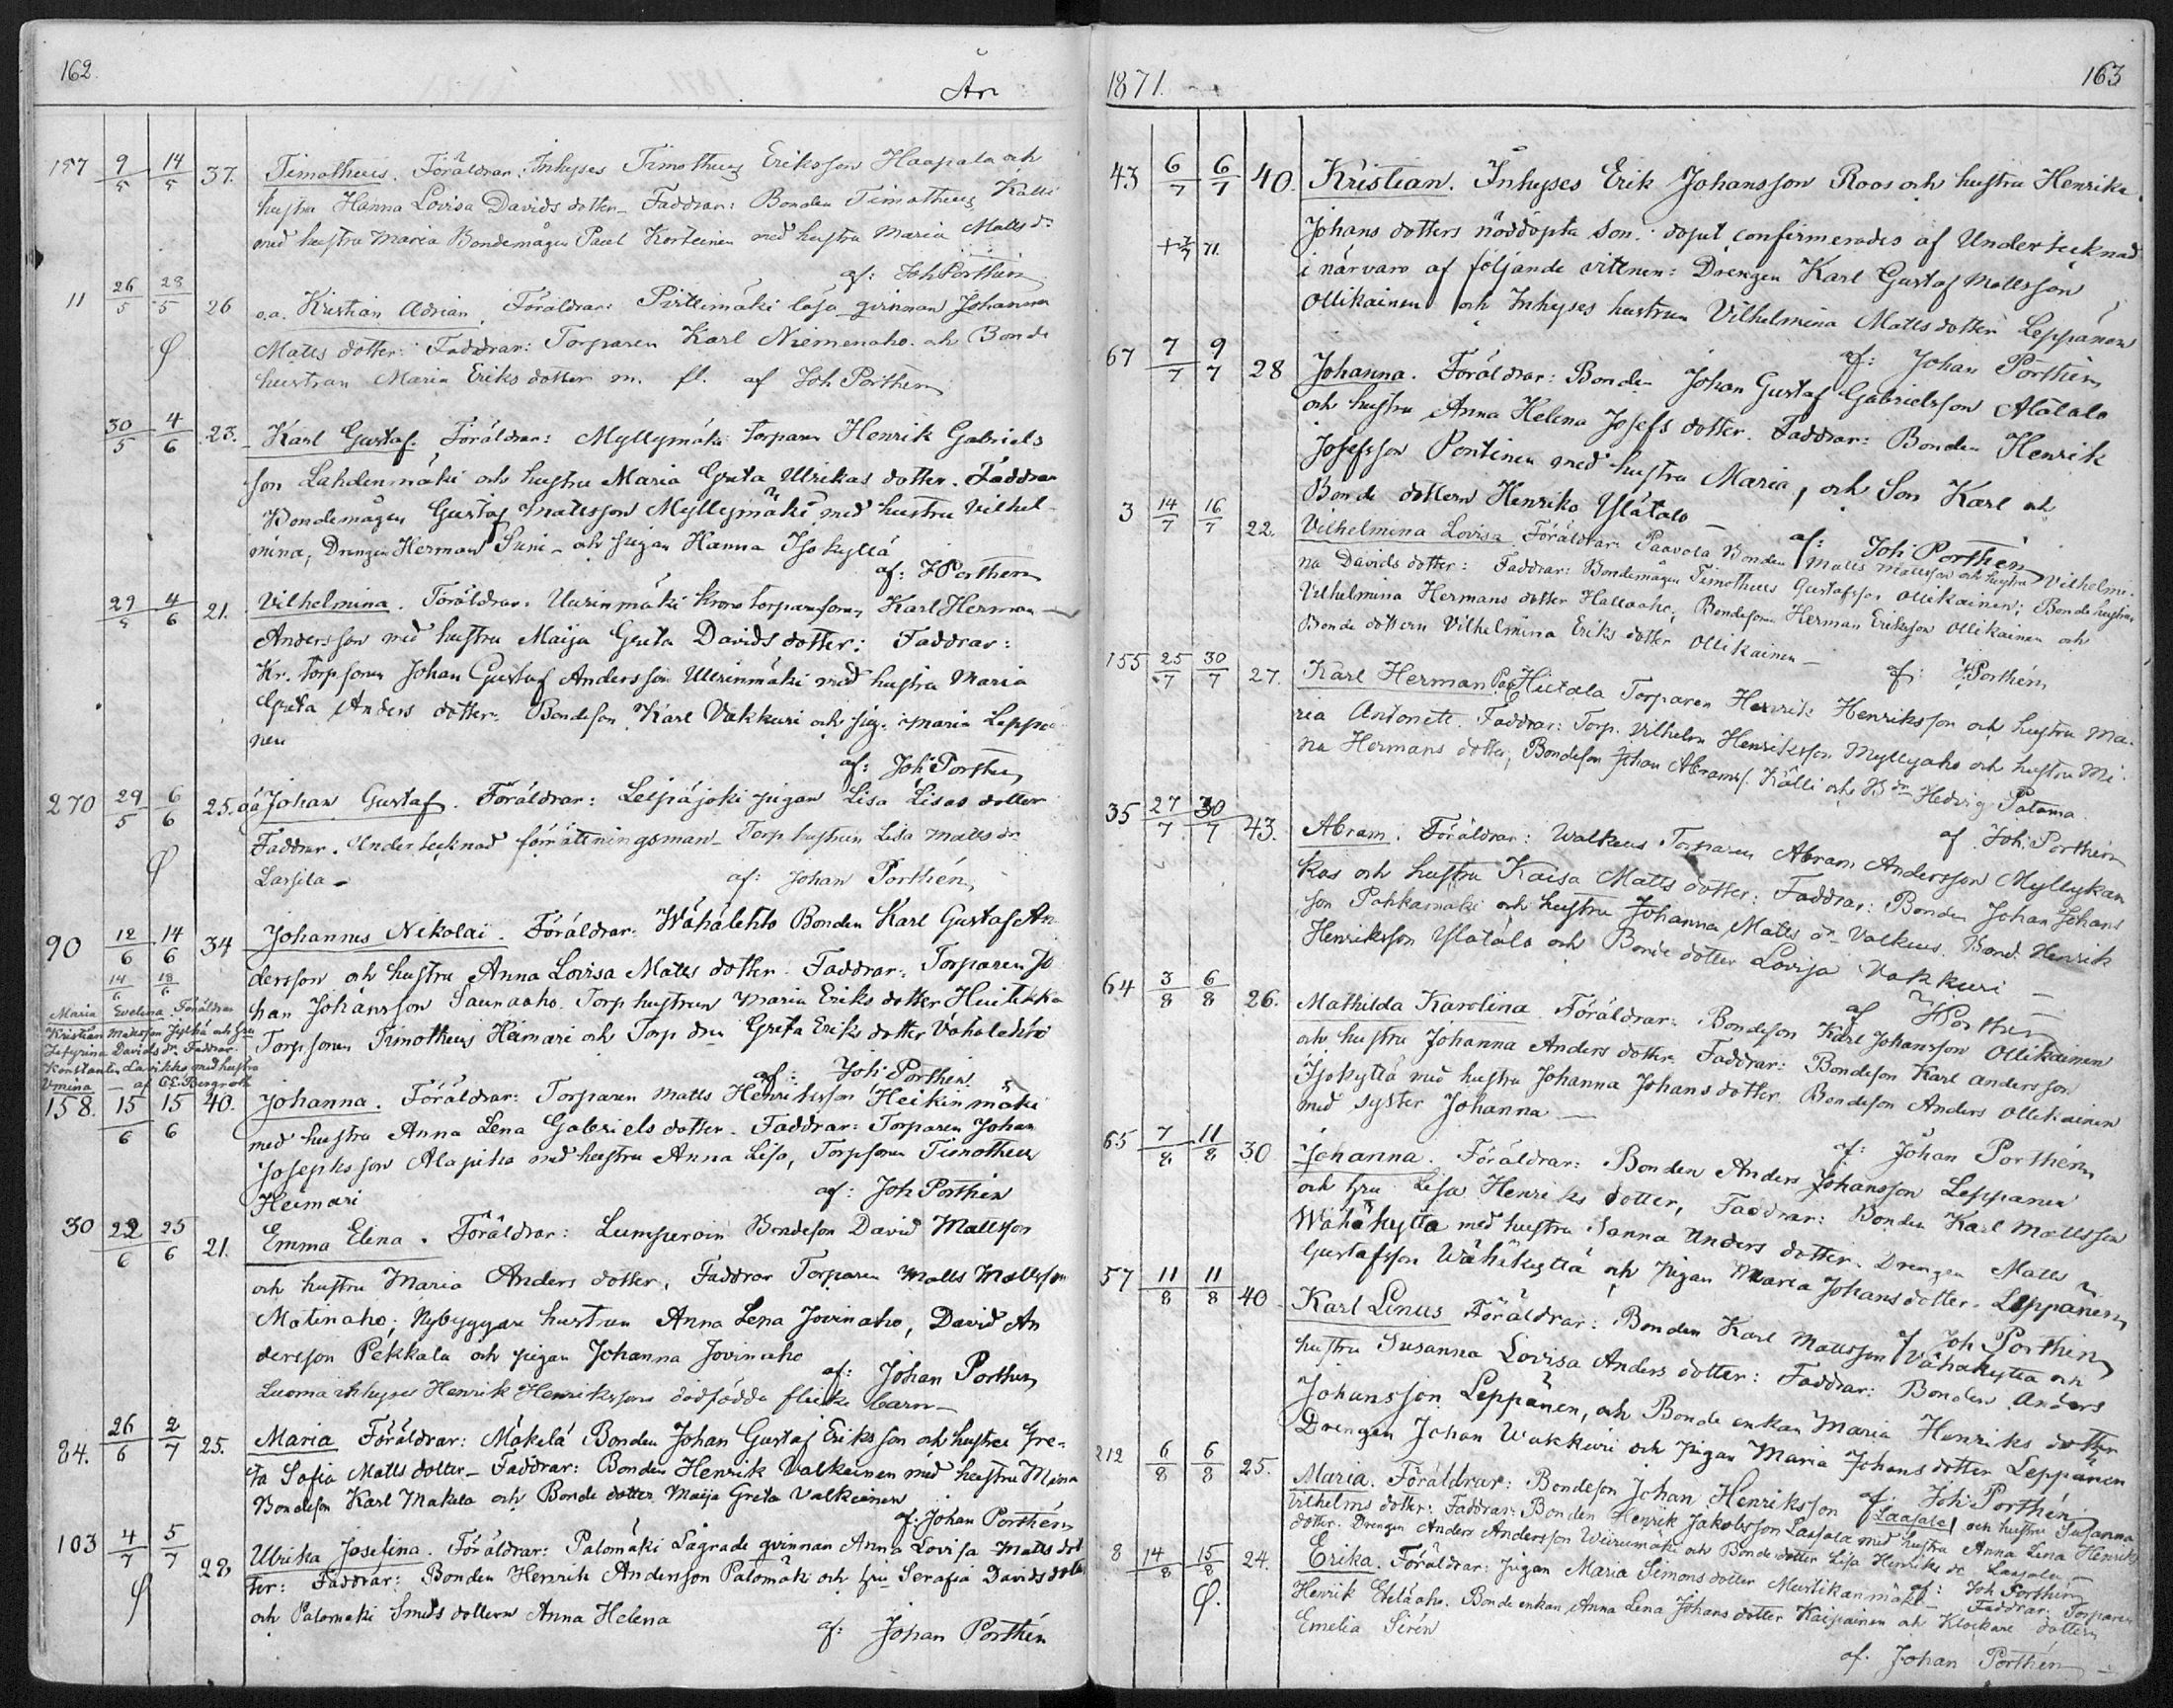 162.
År
157 9/5 14/5 37. Timotheus. Föräldrar: Inhyses Timotheus Eriksson Haapala och
hustru Hanna Lovisa Davids dotter _ Faddrar: Bonden Timotheus Kalli
med hustru Maria Bondemågen Paul Korteinen med hustru Maria Matts dr
af: Joh Porthén
11 26/5 28/5 26 o.a. Kristian Adrian, Föräldrar: Pirttimäki lösa qvinnan Johanna
Matts dotter: Faddrar: Torparen Karl Niemenaho och Bonde
hustrun Maria Eriks dotter m. fl. af Joh Porthén
30/5 4/6 23. Karl Gustaf. Föräldrar: Myllymäki torparen Henrik Gabriels
son Lahdenmäki och hustru Maria Greta Ulrikas dotter. Faddrar
Bondemågen Gustaf Mattsson Myllymäki med hustru Vilhel-
mina, Drengen Herman Suni - och pigan Hanna Isokyllä
af: J Porthén
29/5 4/6 21. Vilhelmina. Föräldrar. Uurinmäki krono torparesonen Karl Herman
Andersson med hustru Maija Greta Davids dotter: Faddrar:
Kr. torpsonen Johan Gustaf Andersson Uurinmäki med hustru Maria
Greta Anders dotter: Bondeson Karl Vakkuri och pig. Maria Leppä
nen
af: Joh Porthén
270 29/5 6/6 25. oä Johan Gustaf. Föräldrar: Leipäjoki pigan Lisa Lisas dotter
Faddrar. Undertecknad förrättningsman _ Torp hustrun Lisa Matts dr
Lassila - af: Johan Porthén
90 12/6 14/6 34 Johannes Nikolai. Föräldrar: Wähälehto Bonden Karl Gustaf An
dersson och hustru Anna Lovisa Matts dotter. Faddrar: Torparen Jo
han Johansson Saunaaho. Torp hustrun Maria Eriks dotter Huitikka
Torpsonen Timotheus Heimari och Torp drn Greta Eriks dotter Vähälehto
af: Joh Porthén
14/6 18/6
Maria Evelina Föräldrar
Kristian Matsson Jylhä och hru
Zefyrina Davids dr. Faddrar:
Konstantin Lavikko med hustru
Vmina - af C E Bergroth
158. 15/6 15/6 40. Johanna. Föräldrar: Torparen Matts Henriksson Heikinmäki
med hustru Anna Lena Gabriels dotter - Faddrar: Torparen Johan
Josephsson Alapiha med hustru Anna Lisa, Torpsonen Timotheus
Heimari af: Joh Porthén
30 22/6 25/6 21. Emma Elena. Föräldrar: Lumperoin Bondeson David Mattsson
och hustru Maria Anders dotter, Faddrar Torparen Matts Mattsson
Matinaho, Nybyggare hustrun Anna Lena Jovinaho, David An
dersson Pekkala och pigan Johanna Jovinaho
af: Johan Porthén
Luoma inhyses Henrik Henrikssons dödfödda flicke barn -
84. 26/6 2/7 25. Maria Föräldrar: Mäkelä Bonden Johan Gustaf Eriksson och hustru Gre-
ta Sofia Matts dotter - Faddrar: Bonden Henrik Valkeinen med hustru Mina
Bondeson Karl Makela och Bonde dotter Maija Greta Valkeinen
af: Johan Porthén
103 4/7 5/7 28 Ulrika Josefina. Föräldrar: Palomäki Lägrade qvinnan Anna Lovisa Matts dot
ter: Faddrar: Bonden Henrik Andersson Palomäki och hru Serafia Davids dotter
och Palomäki Smeds dottern Anna Helena
af: Johan Porthén
1871.
163
43 6/7 6/7 40. Kristian. Inhyses Erik Johansson Roos och hustru Henrika
Johans dotters nöddöpta son. dopet confirmerades af Undertecknad
i närvaro af följande vittnen: Drengen Karl Gustaf Mattsson
Ollikainen och Inhyses hustrun Vilhelmina Matts dotter Leppänen
af: Johan Porthén
67 7/7 9/7 28 Johanna. Föräldrar: Bonden Johan Gustaf Gabrielsson Alatalo
och hustru Anna Helena Josefs dotter. Faddrar: Bonden Henrik
Josefsson Pentinen med hustru Maria, och Son Karl och
Bonde dottern Henrika Ylätalo -
af: Joh Porthén
3 14/7 16/7 22. Vilhelmina Lovisa Föräldrar: Paavola Bonden Matts Mattsson och hustru Vilhelmi-
na Davids dotter: Faddrar: Bondemågen Timotheus Gustafsson Ollikainen; Bonde hustrun
Vilhelmina Hermans dotter Hallaaho; Bondesonen Herman Eriksson Ollikainen och
Bonde dottern Vilhelmina Eriks dotter Ollikainen -
af: J Porthén
155 25/7 30/7 27. Karl Herman Hietala Torparen Henrik Henriksson och hustru Ma-
ria Antonete. Faddrar: Torp. Vilhelm Henriksson Myllyaho och hustru Mi-
na Hermans dotter, Bondeson Johan Abramss. Källi och B dr Hedvig Patama
af Joh. Porthén
35 27/7 30/7 43. Abram. Föräldrar: Walkeus Torparen Abram Andersson Myllykan
kas och hustru Kaisa Matts dotter: Faddrar: Bonden Johan Johans
son Pohkamäki och hustru Johanna Matts dr Valkeus. Bond. Henrik
Henriksson Ylätalo och Bonde dotter Lovisa Vakkuri -
af J Porthén
64 3/8 6/8 26. Mathilda Karolina. Föräldrar: Bondeson Karl Johansson Ollikainen
och hustru Johanna Anders dotter Faddrar: Bondeson Karl Andersson
Isokyttä med hustru Johanna Johans dotter. Bondeson Anders Ollikainen
med syster Johanna -
af: Johan Porthén
65 7/8 11/8 30 Johanna. Föräldrar: Bonden Anders Johansson Leppänen
och hru Lisa Henriks dotter, Faddrar: Bonden Karl Mattsson
Wähäkyttä med hustru Sanna Anders dotter. Drengen Matts
Gustafsson Wähäkyttä och pigan Maria Johans dotter. Leppänen
af Joh Porthén
57 11/8 11/8 40. Karl Linus Föräldrar: Bonden Karl Mattsson Vähäkyttä och
hustru Susanna Lovisa Anders dotter: Faddrar: Bonden Anders
Johansson Leppänen, och Bonde enkan Maria Henriks dotter
Drengen Johan Wakkuri och pigan Maria Johans dotter Leppänen
af: Joh Porthén
212 6/8 6/8 25. Maria. Föräldrar: Bondeson Johan Henriksson Laasala och hustru Susanna
Vilhelms dotter: Faddrar: Bonden Henrik Jakobsson Laasala med hustru Anna Lena Henriks
dotter. Drengen Anders Andersson Wiirumäki och Bonde dotter Lisa Henriks dr Laasala -
af: Joh Porthén
8 14/8 15/8 24. Erika. Föräldrar: pigan Maria Simons dotter Mustikanmäki - Faddrar: Torparen
Henrik Eteläaho. Bonde enkan Anna Lena Johans dotter Kaipainen och Klockare dottern
Emelia Sirén
af. Johan Porthén -